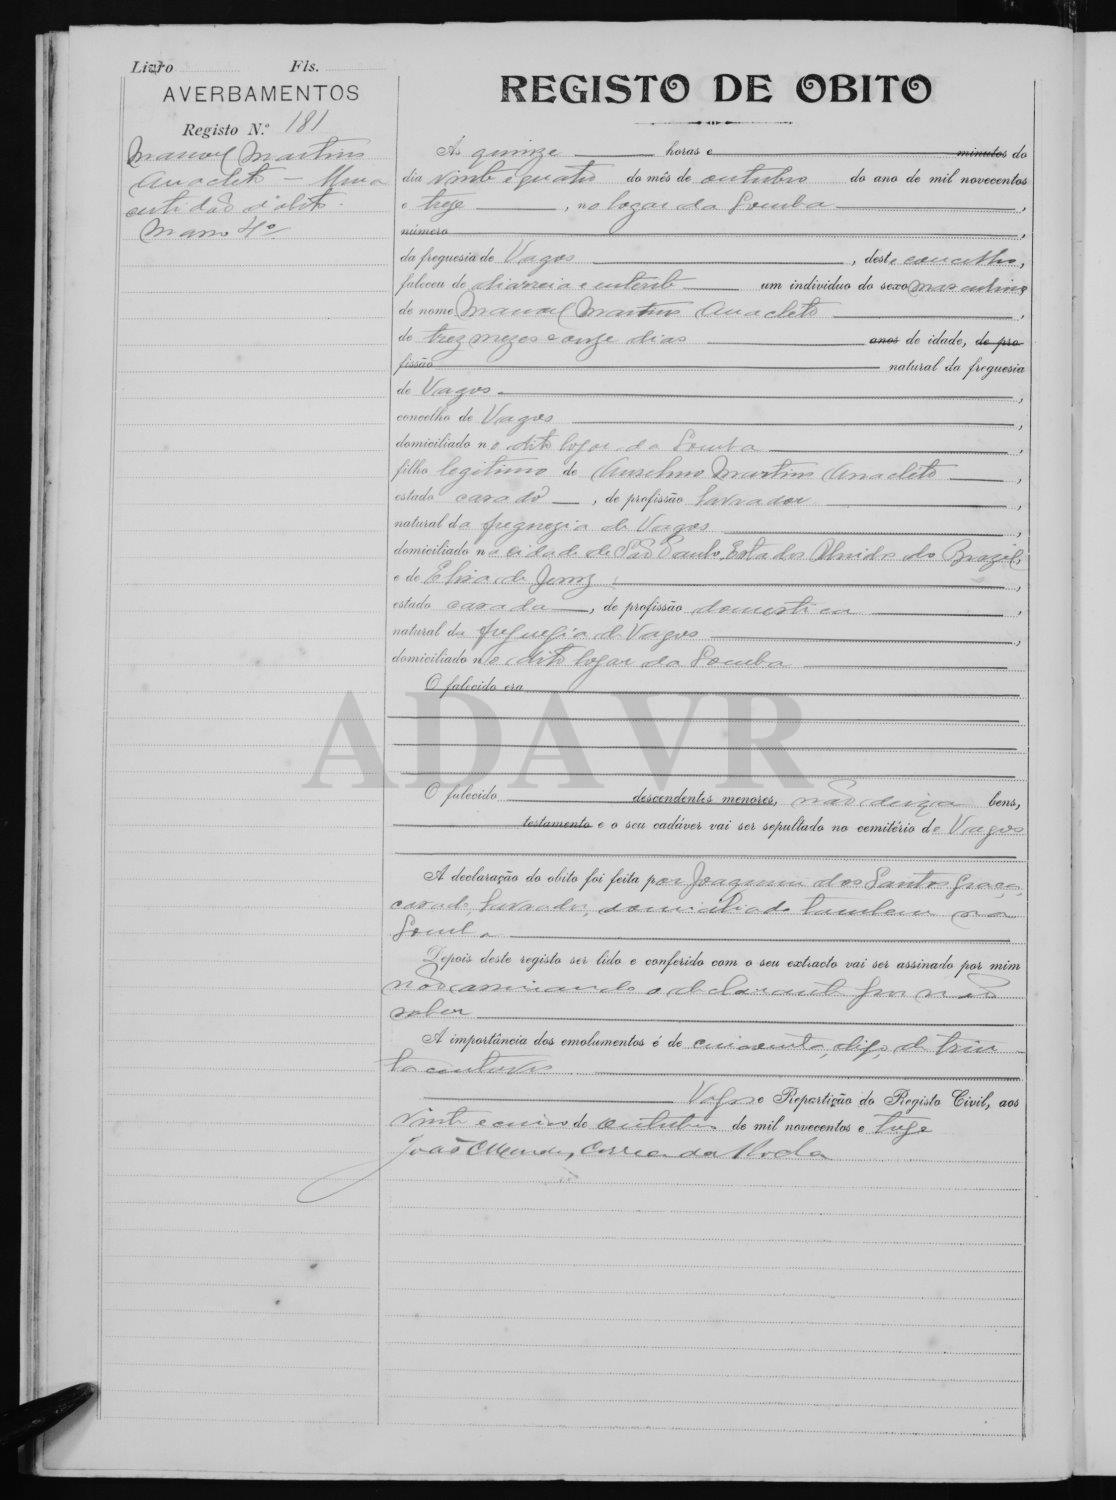 Livro Fls.
AVERBAMENTOS
Registo N.º 181
Manoel Martins
Anacleto — Uma
certidão d'obito.
Maço 4º
REGISTO DE OBITO
Ás quinze horas e minutos do
dia vinte e quatro do mês de outubro do ano de mil novecentos
e treze, no logar da Lomba,
número,
da freguesia de Vagos, deste concelho,
faleceu de diarreia e enterite um individuo do sexo masculino
de nome Manoel Martins Anacleto,
de trez mezes e onze dias anos de idade, de pro-
fissão natural da freguesia
de Vagos,
concelho de Vagos,
domiciliado no dito logar da Lomba,
filho legitimo de Anselmo Martins Anacleto,
estado casado, de profissão lavrador,
natural da freguezia de Vagos,
domiciliado na cidade de São Paulo, Estados Unidos do Brazil,
e de Elisa de Jesus,
estado casada, de profissão domestica,
natural da freguezia de Vagos,
domiciliado no dito logar da Lomba
O falecido era
ADAVR
O falecido descendentes menores, não deixa bens,
testamento e o seu cadáver vai ser sepultado no cemitério de Vagos
A declaração do obito foi feita por Joaquim dos Santos Graça,
casado, lavrador, domiciliado tambem na
Lomba
Depois deste registo ser lido e conferido com o seu extracto vai ser assinado por mim
não assinando o declarante por não
saber
A importância dos emolumentos é de cincoenta, digo, de trin
ta centavos
Vagos e Repartição do Registo Civil, aos
vinte e cinco de outubro de mil novecentos e treze
João Mendes Correia da Rocha